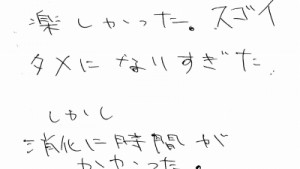 楽しかった。スゴイ
タメになりすぎた
しかし
消化に時間が
かかった。